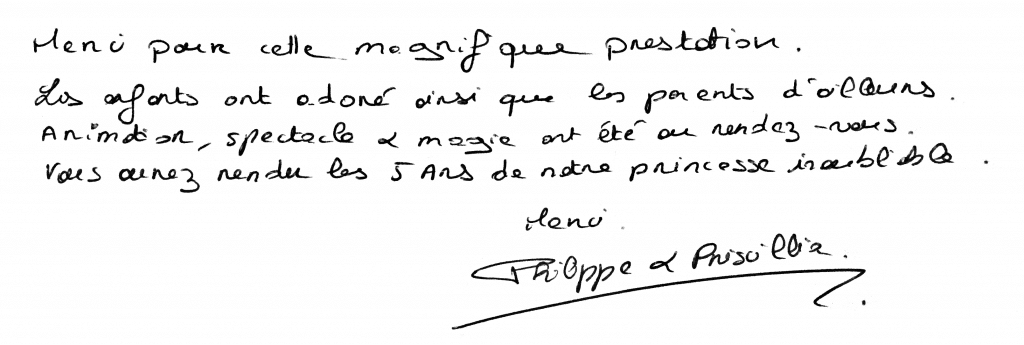 Merci pour cette magnifique prestation.
Les enfants ont adoré ainsi que les parents d'ailleurs.
Animation, spectacle & magie ont été au rendez-vous.
Vous aurez rendu les 5 Ans de notre princesse inoubliable.
Merci.
Philippe & Priscillia.